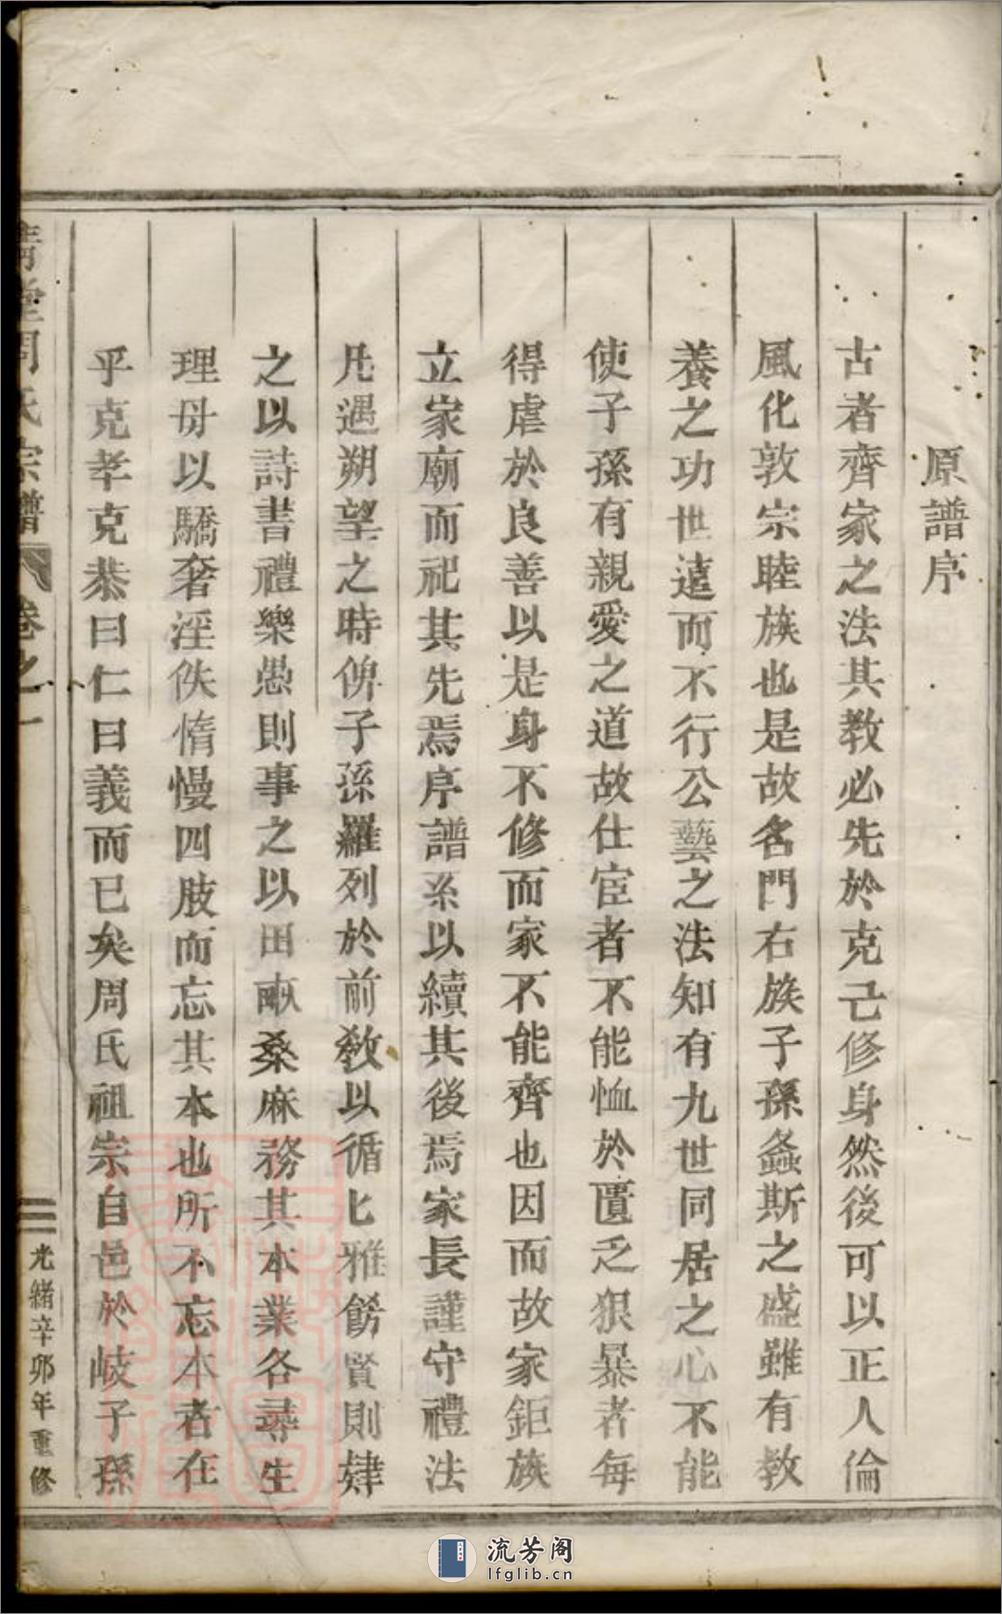 原譜序
古者齊家之法其教必先於克己修身然後可以正人倫
風化敦宗睦族也是故名門右族子孫螽斯之盛雖有教
養之功世遠而不行公藝之法知有九世同居之心不能
使子孫有親愛之道故仕宦者不能恤於匱乏狠暴者每
得虐於良善以是身不修而家不能齊也因而故家鉅族
立家廟而祀其先焉序譜系以續其後焉家長謹守禮法
凡遇朔望之時俾子孫羅列於前教以循匕雅餝賢則肄
之以詩書禮樂愚則事之以田畝桑麻務其本業各尋生
理毋以驕奢淫佚惰慢四肢而忘其本也所不忘本者在
乎克孝克恭曰仁曰義而已矣周氏祖宗自邑於岐子孫
清堂周氏宗譜 卷之一
光緒辛卯年重修
流芳阁
lfglib.cn